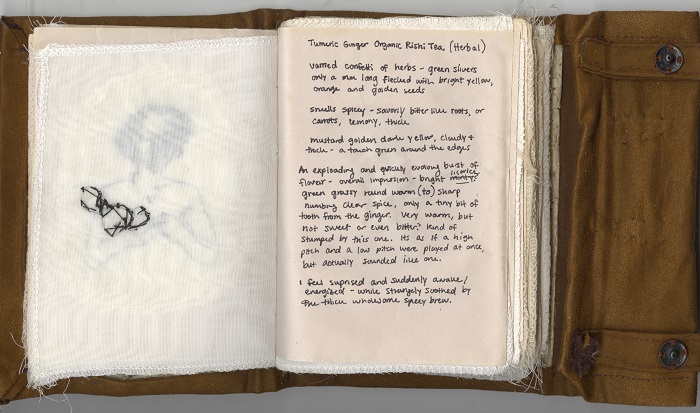 Tumeric Ginger Organic Rishi Tea (Herbal)
varried confetti of herbs - green slivers
only a mm long flecked with bright yellow,
orange and golden seeds
smells spicey - savorily bitter like roots, or
carrots, lemony, thick
mustard golden dark yellow, cloudy +
thick - a touch green around the edges
An exploading and quickly evolving burst of
flavor - overall impression - bright minty? licorice
green grassy round warm (to) sharp
numbing clear spice, only a tiny bit of
tooth from the ginger. Very warm, but
not sweet or even bitter? kind of
stumped by this one. Its as if a high
pitch and a low pitch were played at once,
but actually sounded like one.
I feel suprised and suddenly awake/
energized - while strangely soothed by
the thick wholesome spicey brew.